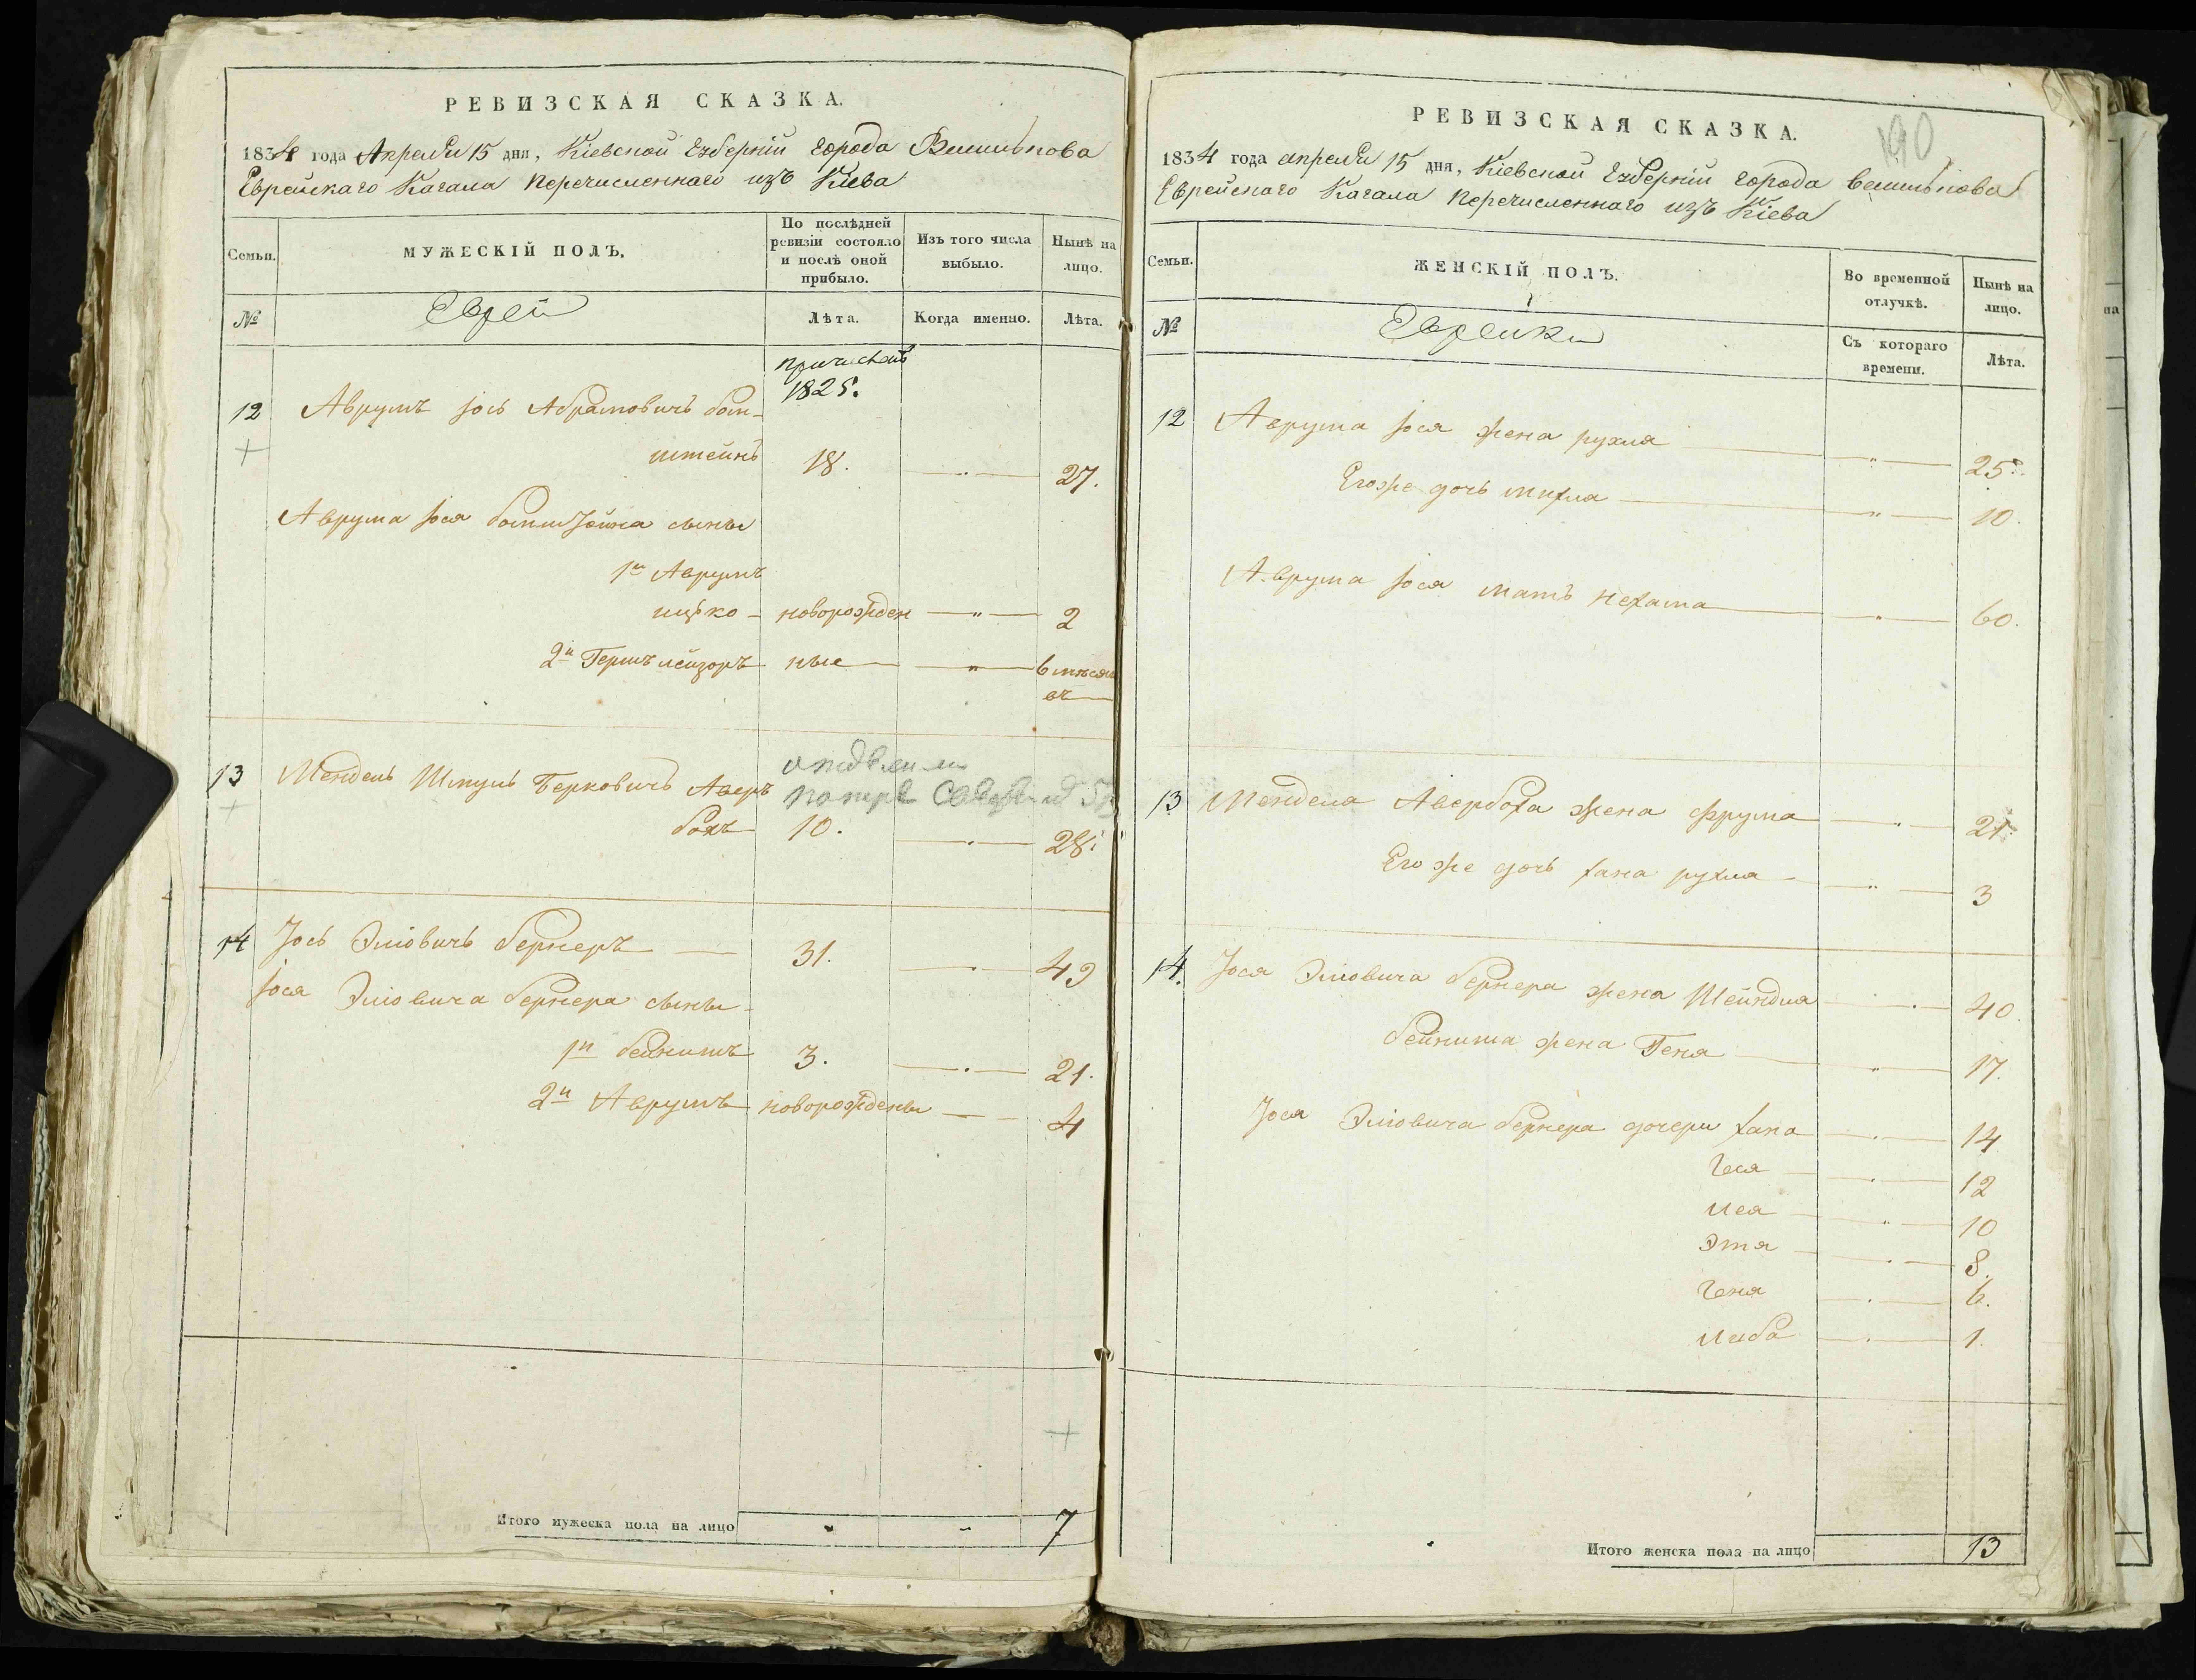 РЕВИЗСКАЯ СКАЗКА.
1834 года Апреля 15 дня, Кіевской Губерніи города
Еврейскаго Кагала перечисленнаго изъ Кіева
Семьи.
МУЖЕСКІЙ ПОЛЪ.
По послѣдней
ревизіи состояло
и послѣ оной
прибыло.
Изъ того числа
выбыло.
Нынѣ на
лицо.
№
Евреи
Лѣта.
Когда именно.
Лѣта.
1825.
12 Аврумъ Іось Абрамовичъ бот-
штейнъ 18. 27.
Аврума Іося ботштейна сыны
1й Аврумъ
ицько - новорожден 2
2й Гершъ лейзоръ ные 6 месяц
овъ
13 Мендель Шмуль Берковичъ Авер
бохъ 10. 28.
14 Іось Эліовичъ бернеръ 31. 49
Іося Эліовича бернера сыны
1й бейнишъ 3. 21.
2й Аврумъ новорожденый 4
Итого мужеска пола на лицо 7
190
РЕВИЗСКАЯ СКАЗКА.
1834 года апреля 15 дня, Кіевской Губерніи города
Еврейскаго Кагала перечисленнаго изъ Кіева
Семьи.
ЖЕНСКІЙ ПОЛЪ.
Во временной
отлучкѣ.
Нынѣ на
лицо.
№
Еврейки
Съ котораго
времени.
Лѣта.
12 Аврума Іося жена рухля 25.
Его же дочь михля 10.
Аврума Іося мать нехама 60.
13 Менделя Авербоха жена фрума 21.
Его же дочь хана рухля 3
14. Іося Эліовича бернера жена Шейндля 40.
бейниша жена Геня 17.
Іося Эліовича бернера дочери хана 14
Геся 12
Лея 10
Этя 8.
Геня 6.
Либа 1.
Итого женска пола на лицо 13